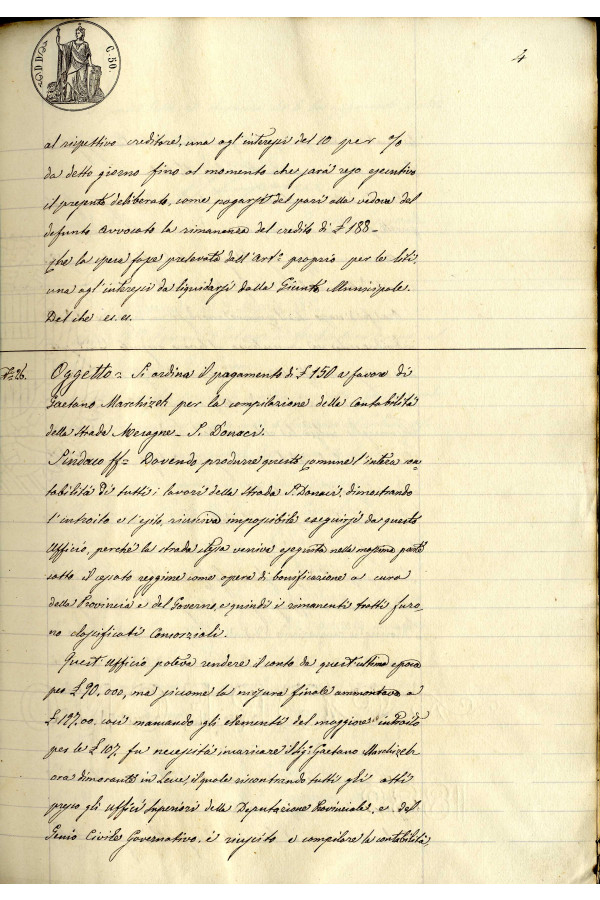 C. 50.
4
al rispettivo creditore, una agl'interessi del 10 per %
da detto giorno fino al momento che sarà reso esecutivo
il presente deliberato, come pagarsi del pari alla vedova del
defunto Avvocato la rimanenza del credito di £ 188 -
che la spesa fosse prelevata dall'Art.o proprio per le liti,
una agl'interessi da liquidarsi dalla Giunta Municipale.
Del che es. es.
N.o 26.
Oggetto = Si ordina il pagamento di £ 150 a favore di
Gaetano Marchizeh per la compilazione della Contabilità
della Strada Mesagne - S. Donaci.
Sindaco ff = Dovendo produrre questo Comune l'intera con-
tabilità di tutti i lavori della strada S. Donaci, dimostrando
l'introito e l'esito, riusciva impossibile eseguirsi da questo
Ufficio, perchè la strada istessa veniva eseguita nella massima parte
sotto il cessato reggime come opera di bonificazione a cura
della Provincia e del Governo, e quindi i rimanenti tratti furo-
no classificati Consorziali.
Quest'Ufficio poteva rendere il conto da quest'ultima epoca
per £ 90,000, ma siccome la misura finale ammontava a
£ 197.00. così mancando gli elementi del maggiore introito
per le £ 107. fu necessità incaricare il Sig.r Gaetano Marchizeh
ora dimorante in Lecce, il quale riscontrando tutti gli atti
presso gli Uffici Superiori della Deputazione Provinciale, e del
Genio Civile Governativo, è riuscito a compilare la contabilità